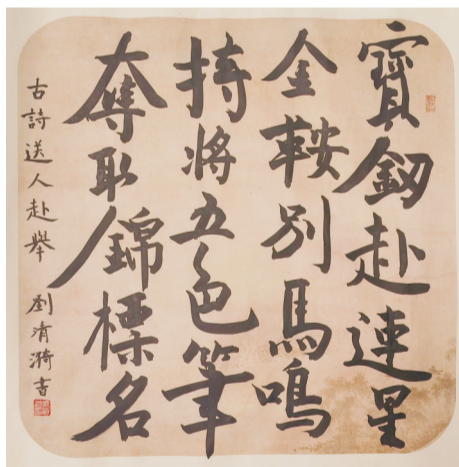 寶釰赴連星
金鞍別馬鳴
持將五色筆
奪取錦標名
古詩送人赴舉 劉淯漪書